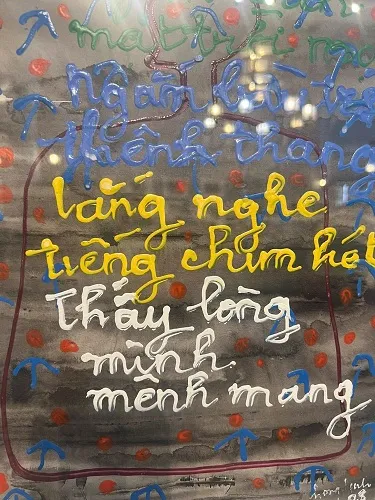 mặt trời
ngắm bầu trờ
thênh thang
lắng nghe
tiếng chim hót
Thấy lòng
mình
mênh mang